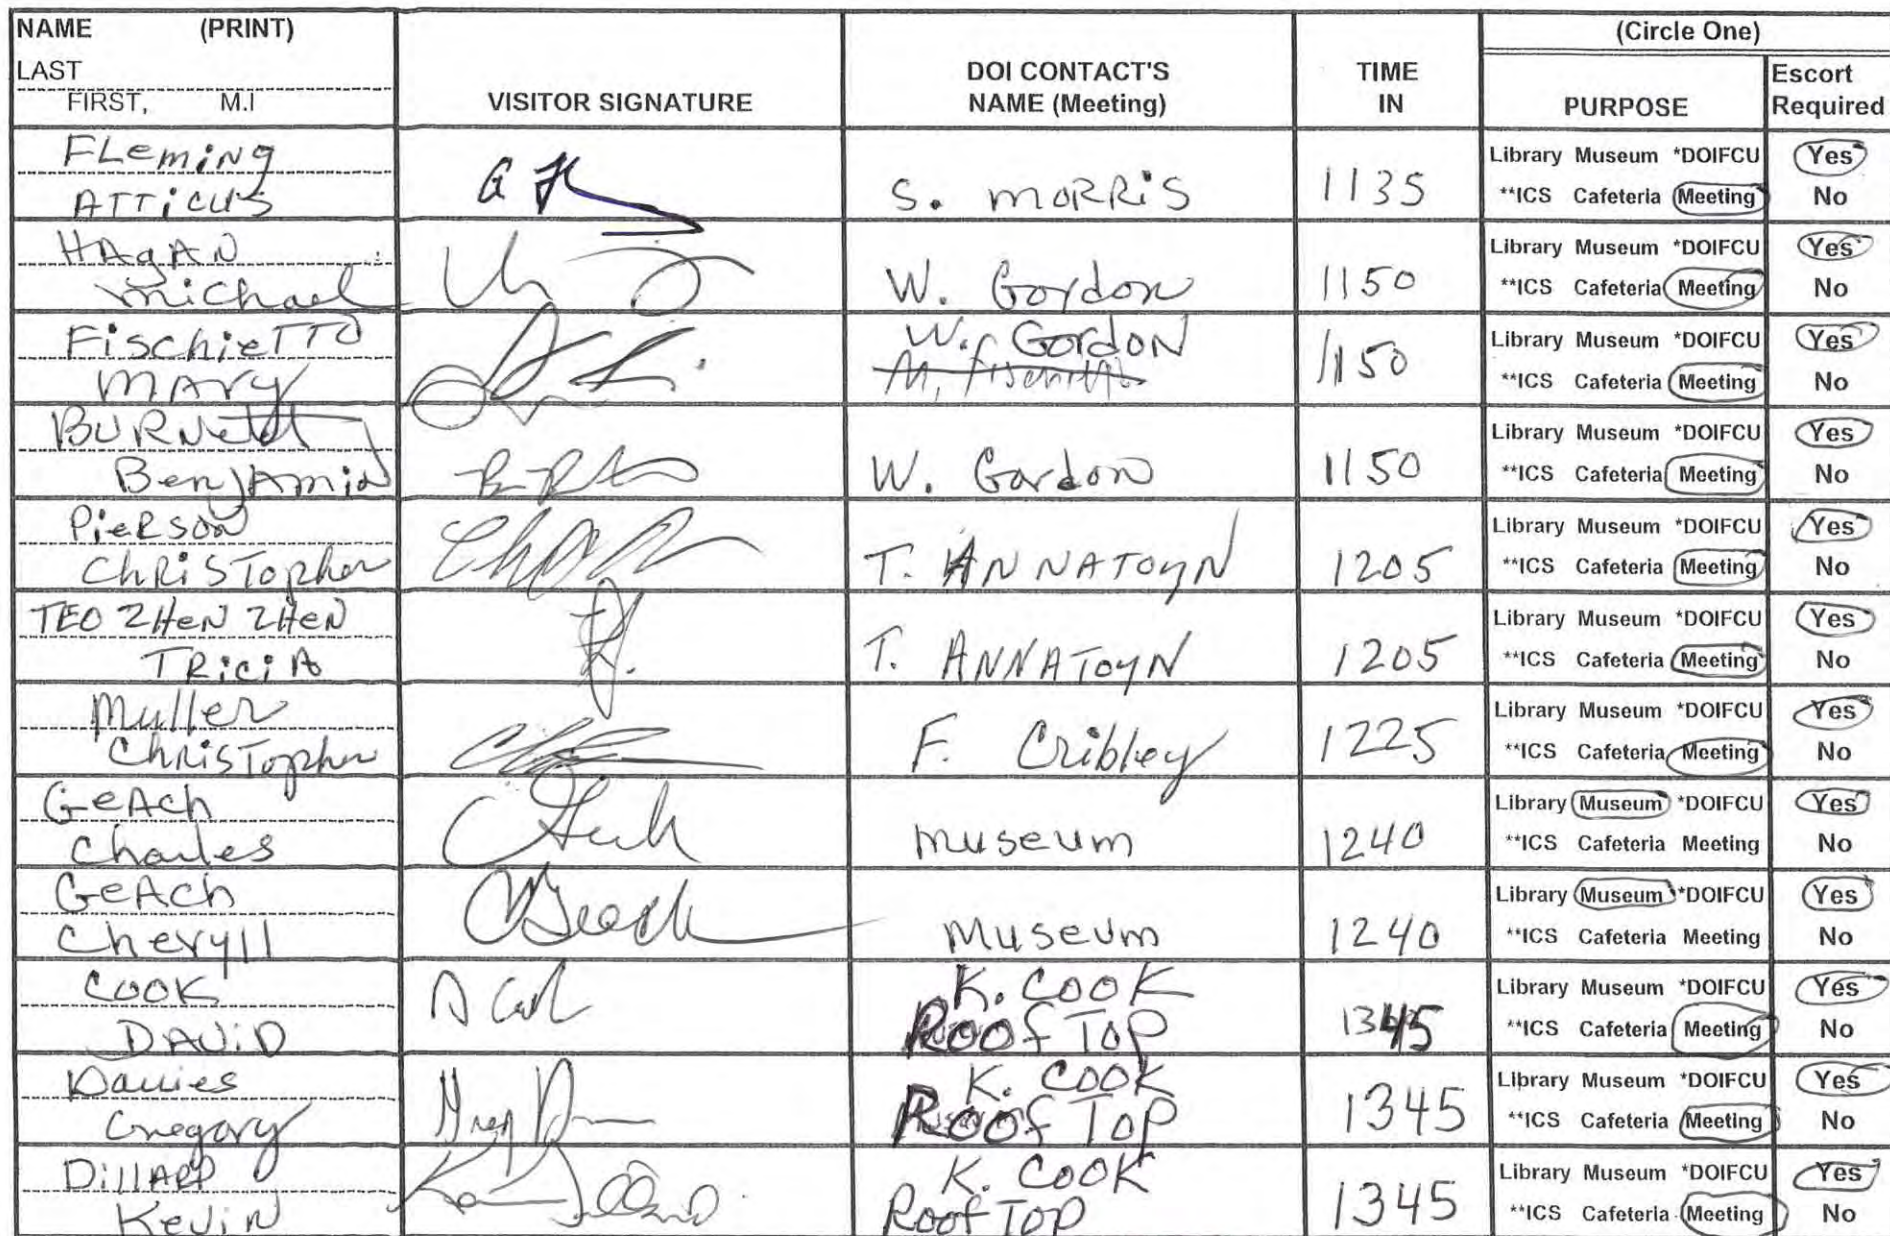 NAME (PRINT)
LAST
FIRST, M.I
VISITOR SIGNATURE
DOI CONTACT'S
NAME (Meeting)
TIME
IN
(Circle One)
PURPOSE
Escort
Required
FLeming
ATTiCUS
S. MORRiS
1135
Library Museum *DOIFCU Yes
**ICS Cafeteria Meeting No
HAgAN
michael
W. Gordon
1150
Library Museum *DOIFCU Yes
**ICS Cafeteria Meeting No
FischieTTO
MARY
W. GORDON
M. Fischietto
1150
Library Museum *DOIFCU Yes
**ICS Cafeteria Meeting No
BURNett
BenJAmiN
W. Gordon
1150
Library Museum *DOIFCU Yes
**ICS Cafeteria Meeting No
PieRSON
ChRiSTopher
T. ANNATOYN
1205
Library Museum *DOIFCU Yes
**ICS Cafeteria Meeting No
TEO ZHeN ZHeN
TRiciA
T. ANNATOYN
1205
Library Museum *DOIFCU Yes
**ICS Cafeteria Meeting No
Muller
ChRisTopher
F. Cribley
1225
Library Museum *DOIFCU Yes
**ICS Cafeteria Meeting No
GeAch
Charles
museum
1240
Library Museum *DOIFCU Yes
**ICS Cafeteria Meeting No
GeAch
Cheryll
Museum
1240
Library Museum *DOIFCU Yes
**ICS Cafeteria Meeting No
COOK
DAViD
D Cook
K. COOK
Roof Top
1345
Library Museum *DOIFCU Yes
**ICS Cafeteria Meeting No
Davies
Gregory
Greg D
K. COOK
Roof Top
1345
Library Museum *DOIFCU Yes
**ICS Cafeteria Meeting No
DillARD
KeviN
K. COOK
Roof Top
1345
Library Museum *DOIFCU Yes
**ICS Cafeteria Meeting No